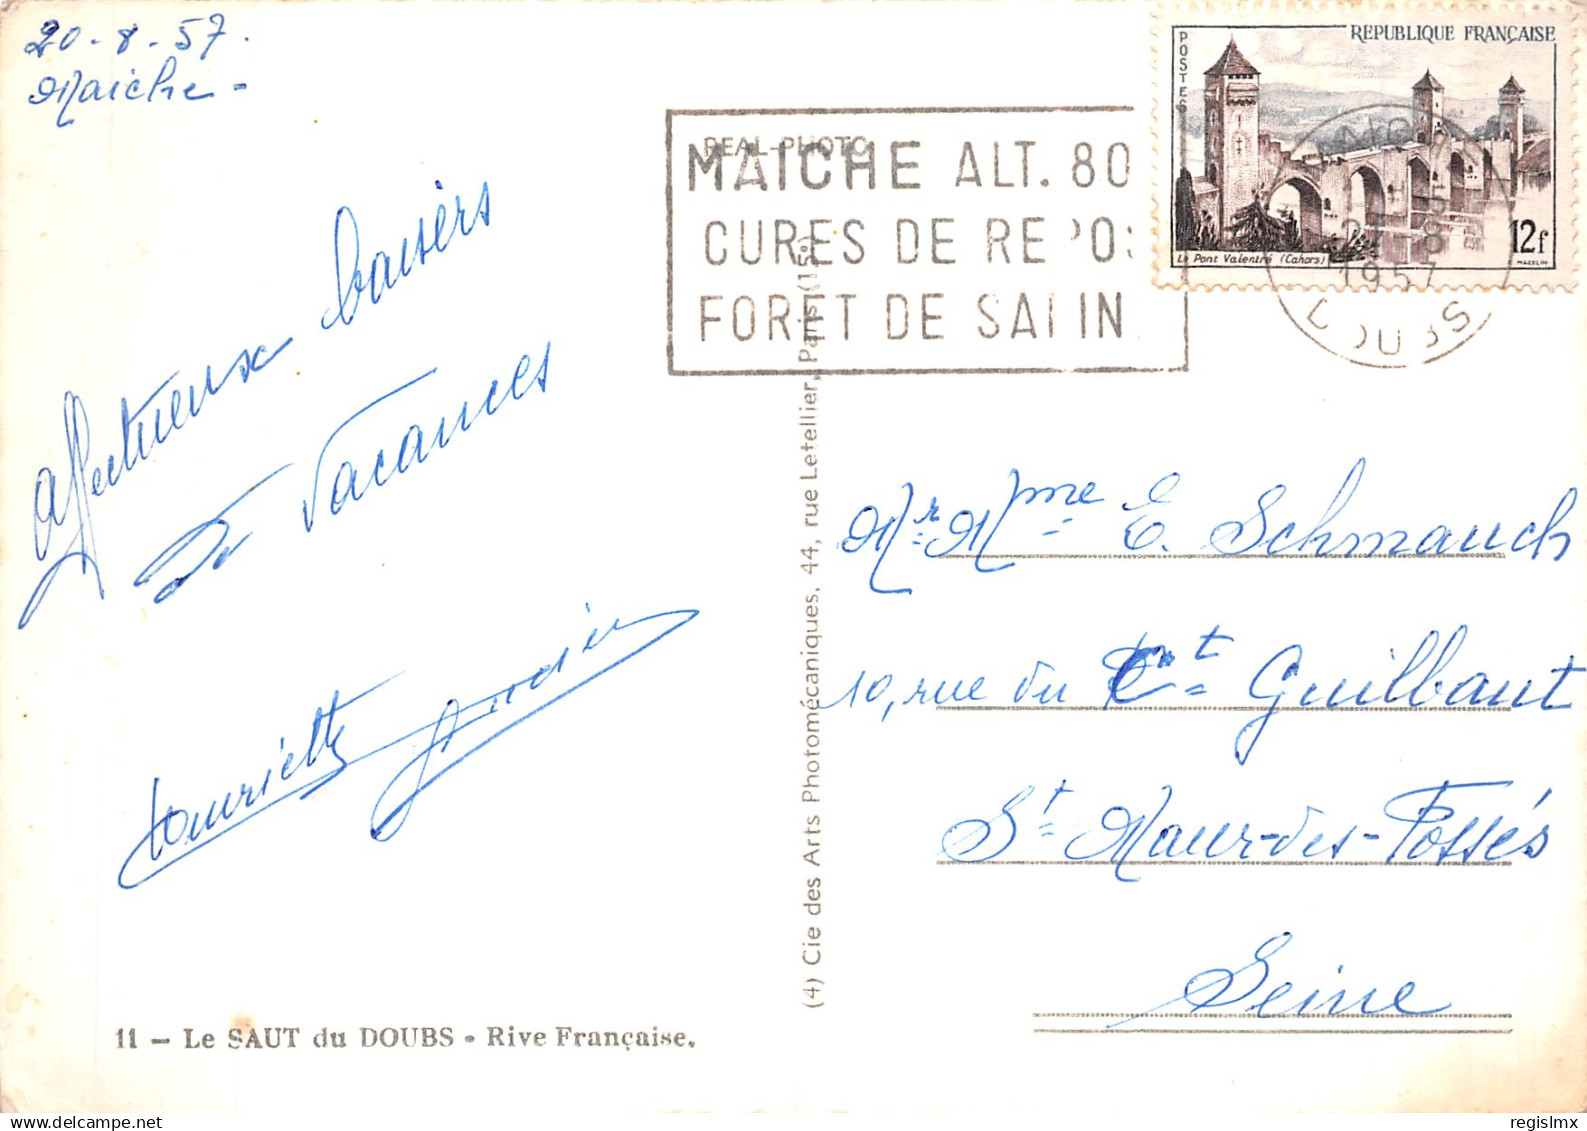 20-8-57.
Maiche -
affectueux baisers
de vacances
Henriette
REAL-PHOTO
MAICHE ALT. 80
CURES DE REPOS
FORET DE SAPIN
POSTES
REPUBLIQUE FRANÇAISE
Le Pont Valentré (Cahors)
12f
MAZELIN
8
1957
DOUBS
(4) Cie des Arts Photomécaniques, 44, rue Letellier, Paris (15e)
Mr Mme E. Schmauch
10, rue du Ct Guilbaut
St Maur-des-Fossés
Seine
11 - Le SAUT du DOUBS - Rive Française.
regislmx